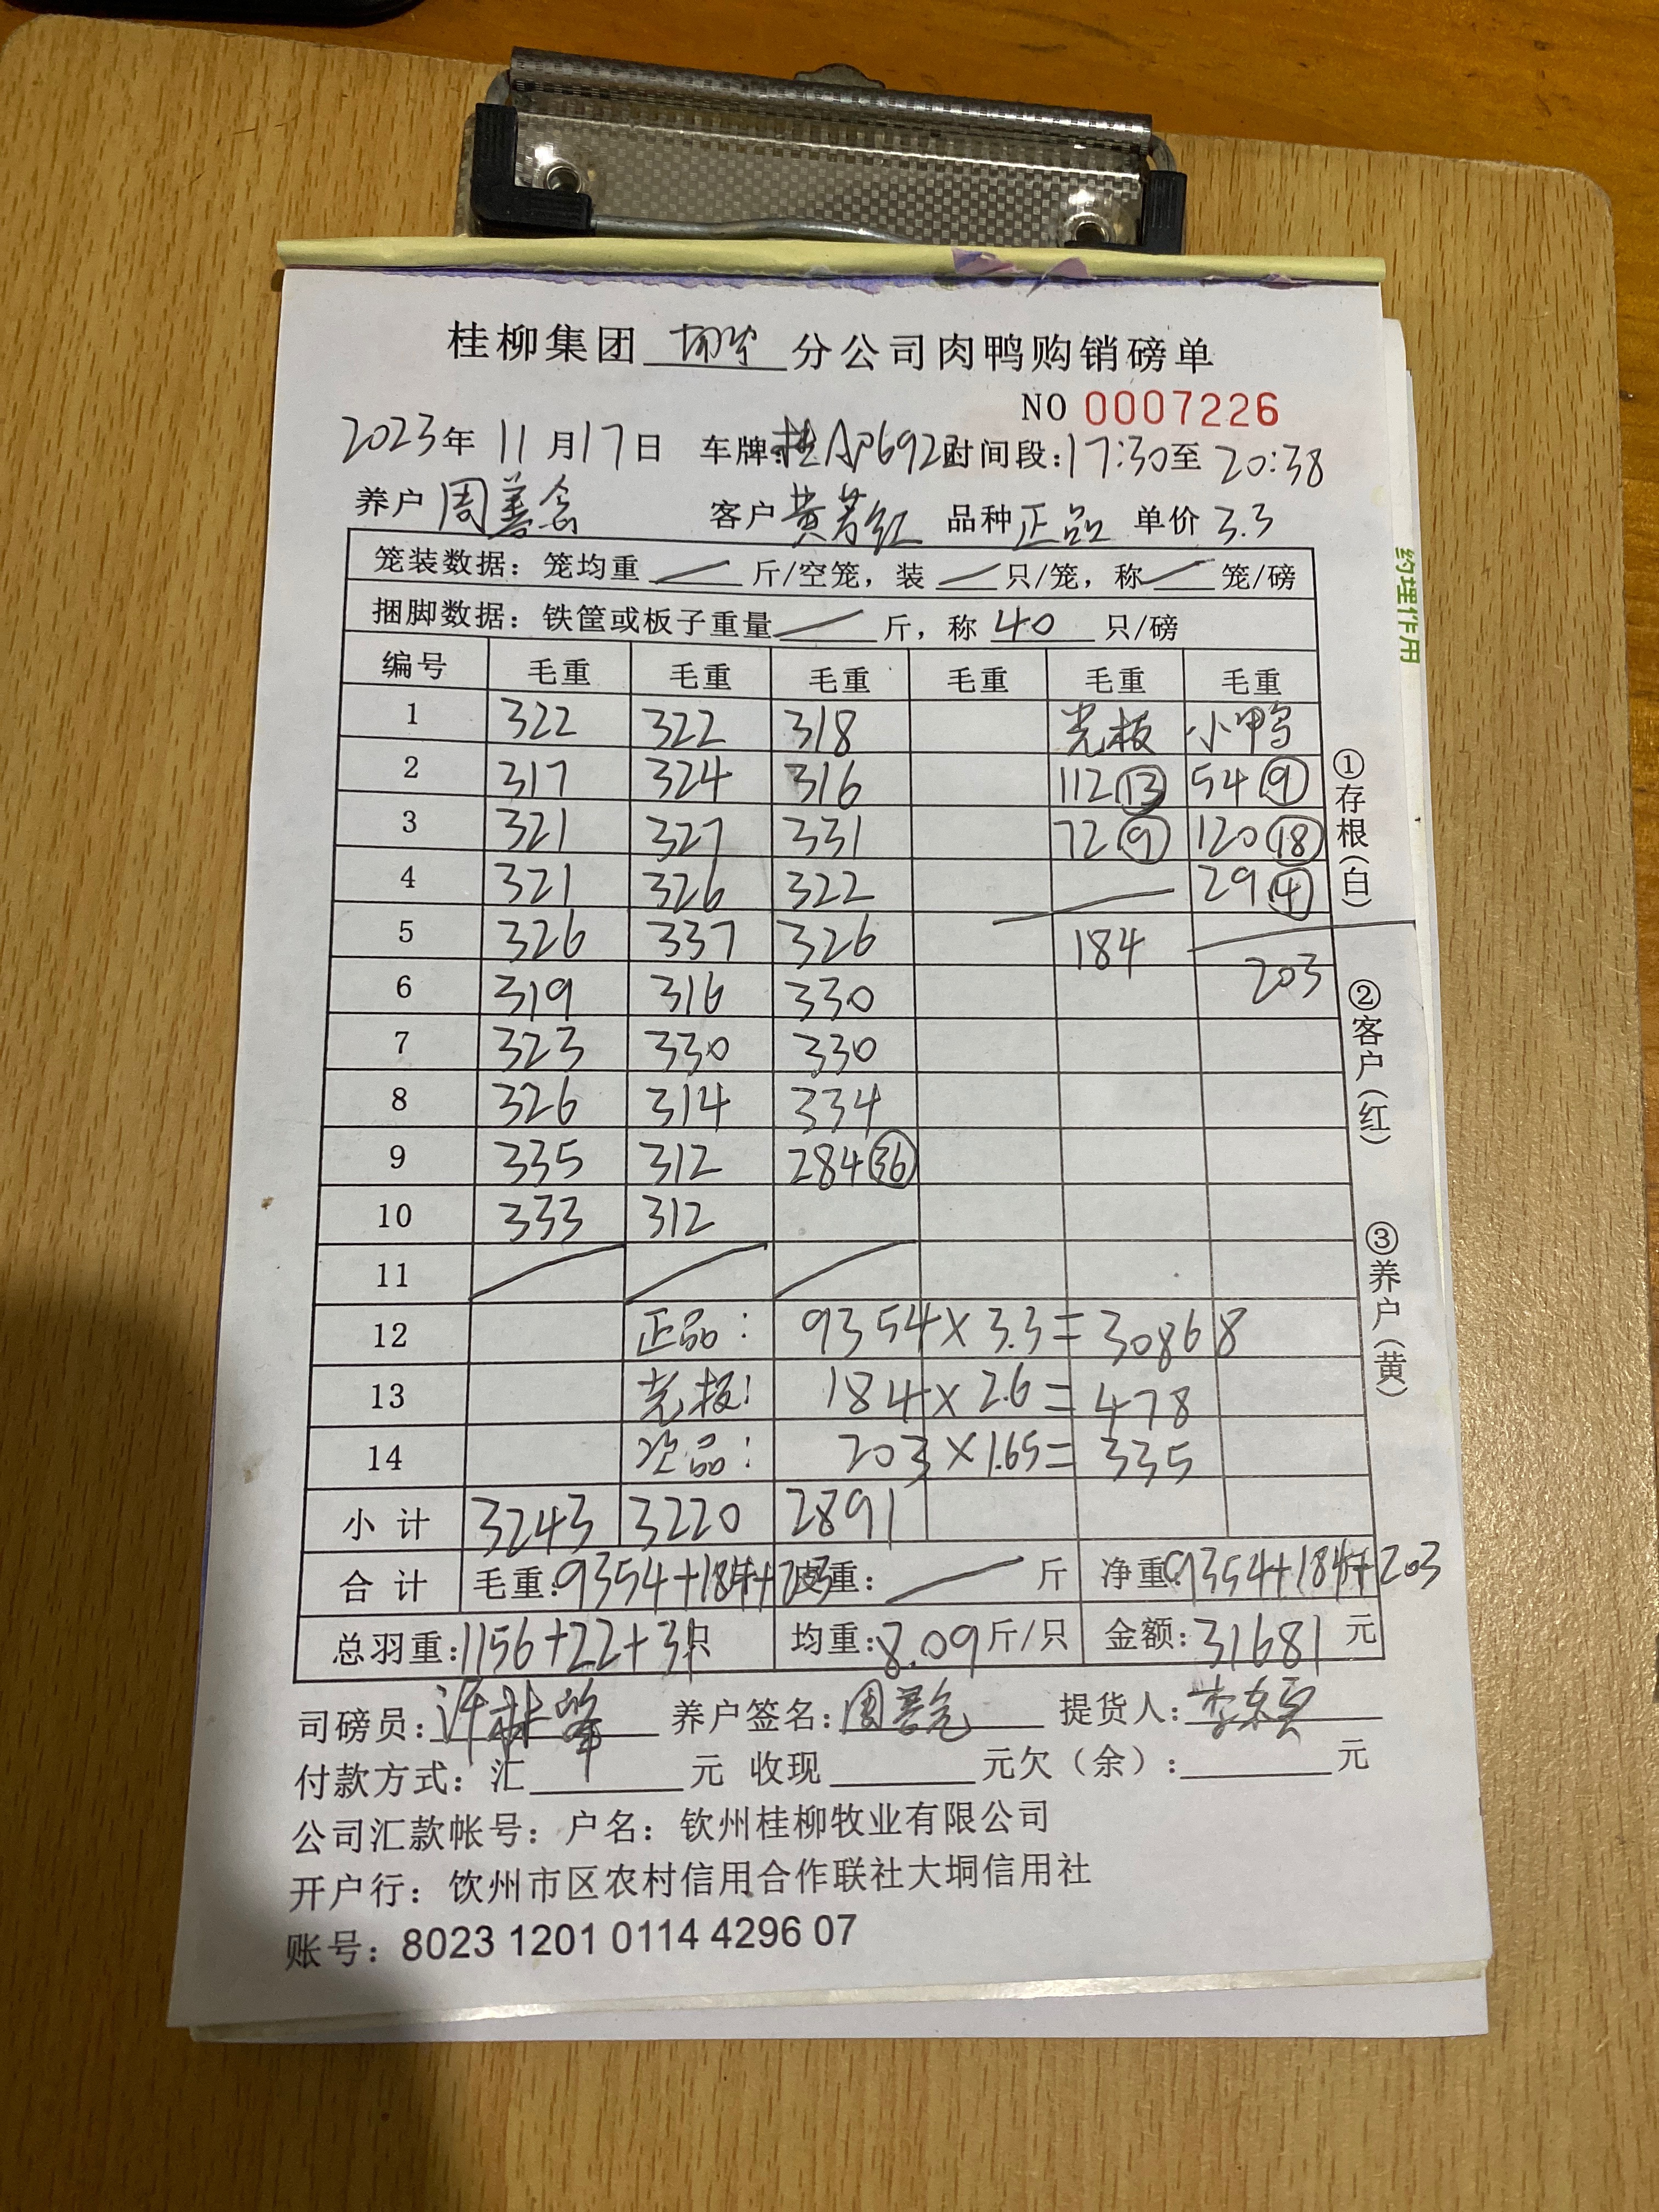 桂柳集团 分公司肉鸭购销磅单
NO 0007226
2023年 11月17日 车牌:桂AP692 时间段:17:30至20:38
养户 周善念 客户 黄芳红 品种 正品 单价 3.3
笼装数据：笼均重 / 斤/空笼，装 / 只/笼，称 / 笼/磅
捆脚数据：铁筐或板子重量 / 斤，称 40 只/磅
编号 毛重 毛重 毛重 毛重 毛重 毛重
1 322 322 318 光板 小鸭
2 317 324 316 112⑬ 54⑨
3 321 327 331 72⑨ 120⑱
4 321 326 322 / 29④
5 326 337 326 184
6 319 316 330 203
7 323 330 330
8 326 314 334
9 335 312 284㊱
10 333 312
11 / / /
12 正品: 9354×3.3=30868
13 光板: 184×2.6=478
14 次品: 203×1.65=335
小计 3243 3220 2891
合计 毛重:9354+184+203 皮重: / 斤 净重:9354+184+203
总羽重:1156+22+31只 均重:8.09斤/只 金额:31681元
司磅员:许 养户签名:周善 提货人:李
付款方式：汇 元 收现 元欠（余）: 元
公司汇款帐号：户名：钦州桂柳牧业有限公司
开户行：钦州市区农村信用合作联社大垌信用社
账号：8023 1201 0114 4296 07
①存根(白)
②客户(红)
③养户(黄)
约理作用